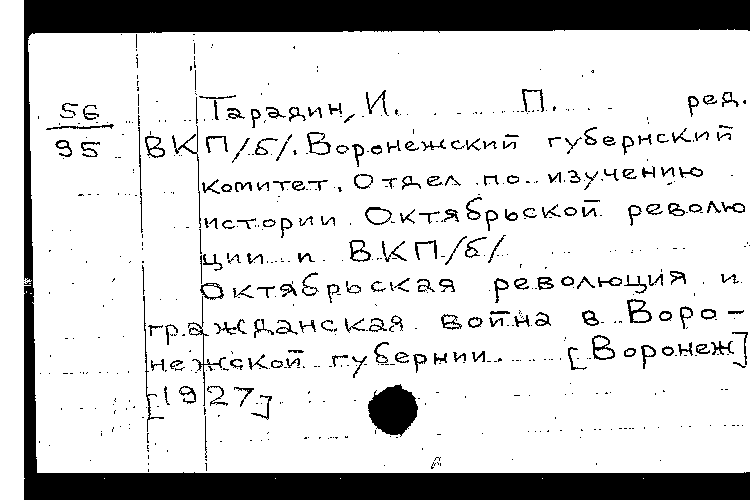 56
95
Тарадин, И. П. ред.
ВКП/б/. Воронежский губернский
комитет. Отдел по изучению
истории Октябрьской револю
ции и ВКП/б/
Октябрьская революция и
гражданская война в Воро-
нежской губернии. [Воронеж]
[1927]